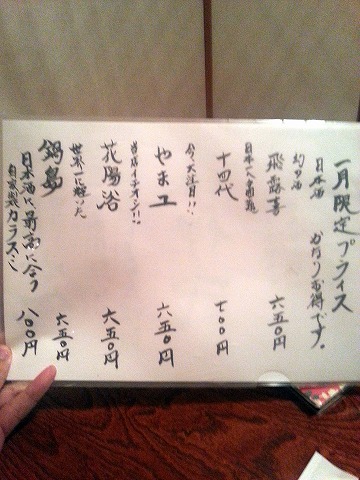 一月限定プライス
日本酒 かなりお得です。
幻の酒
飛露喜 六五〇円
日本一入手困難
十四代 七〇〇円
今、大注目!!
やまユ 六五〇円
当店イチオシ!!
花陽浴 六五〇円
世界一に輝いた
鍋島 六五〇円
日本酒に最高に合う
自家製カラスミ 八〇〇円